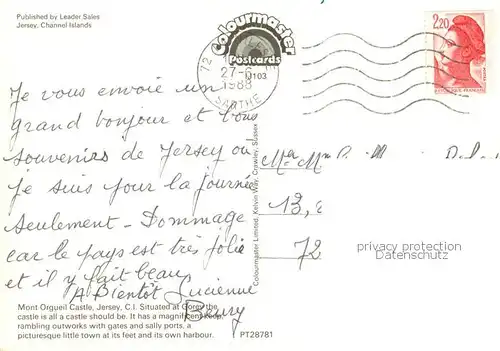 Published by Leader Sales
Jersey, Channel Islands
Colourmaster
Postcards
72
27-6
1988
SARTHE
103
2,20
Je vous envoie un
grand bonjour et bons
souvenirs de Jersey ou
je suis pour la journée
seulement - Dommage
car le pays est très jolie
et il y fait beau
A Bientôt Lucienne
Mont Orgueil Castle, Jersey, C.I. Situated at Gorey the
castle is all a castle should be. It has a magnificent keep,
rambling outworks with gates and sally ports, a
picturesque little town at its feet and its own harbour.
PT28781
Colourmaster Limited, Kelvin Way, Crawley, Sussex
13,
72
privacy protection
Datenschutz